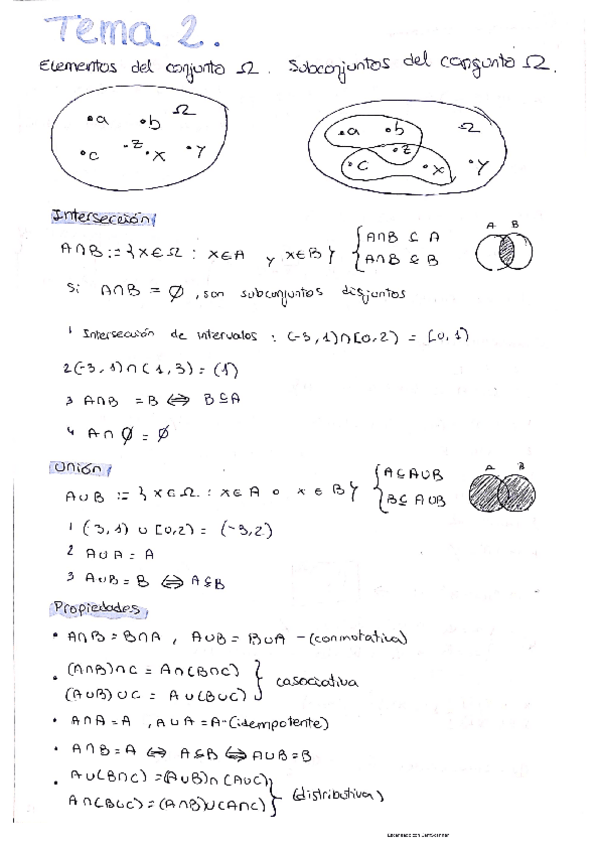 Tema 2.
Elementos del conjunto Ω. Subconjuntos del congunto Ω.
a b Ω c z x y
a b Ω z c x y
Intersección
A∩B := {x∈Ω : x∈A y x∈B} { A∩B ⊆ A
A∩B ⊆ B
A B
Si A∩B = ∅, son subconjuntos disjuntos
1 Intersección de intervalos : (-3, 1)∩[0, 2) = [0, 1)
2 (-3, 1)∩( 1, 3) = (1)
3 A∩B = B ⇔ B⊆A
4 A∩∅ = ∅
Unión
A∪B := {x∈Ω : x∈A o x∈B} { A⊆A∪B
B⊆A∪B
A B
1 (3, 1) ∪ [0,2) = (-3,2)
2 A∪A = A
3 A∪B = B ⇔ A⊆B
Propiedades
• A∩B = B∩A , A∪B = B∪A - (conmutativa)
• (A∩B)∩C = A∩(B∩C)
(A∪B)∪C = A∪(B∪C) } casociativa
• A∩A = A , A∪A = A - (idempotente)
• A∩B = A ⇔ A⊆B ⇔ A∪B = B
• A∪(B∩C) = (A∪B)∩(A∪C)
A∩(B∪C) = (A∩B)∪(A∩C) } (distributiva)